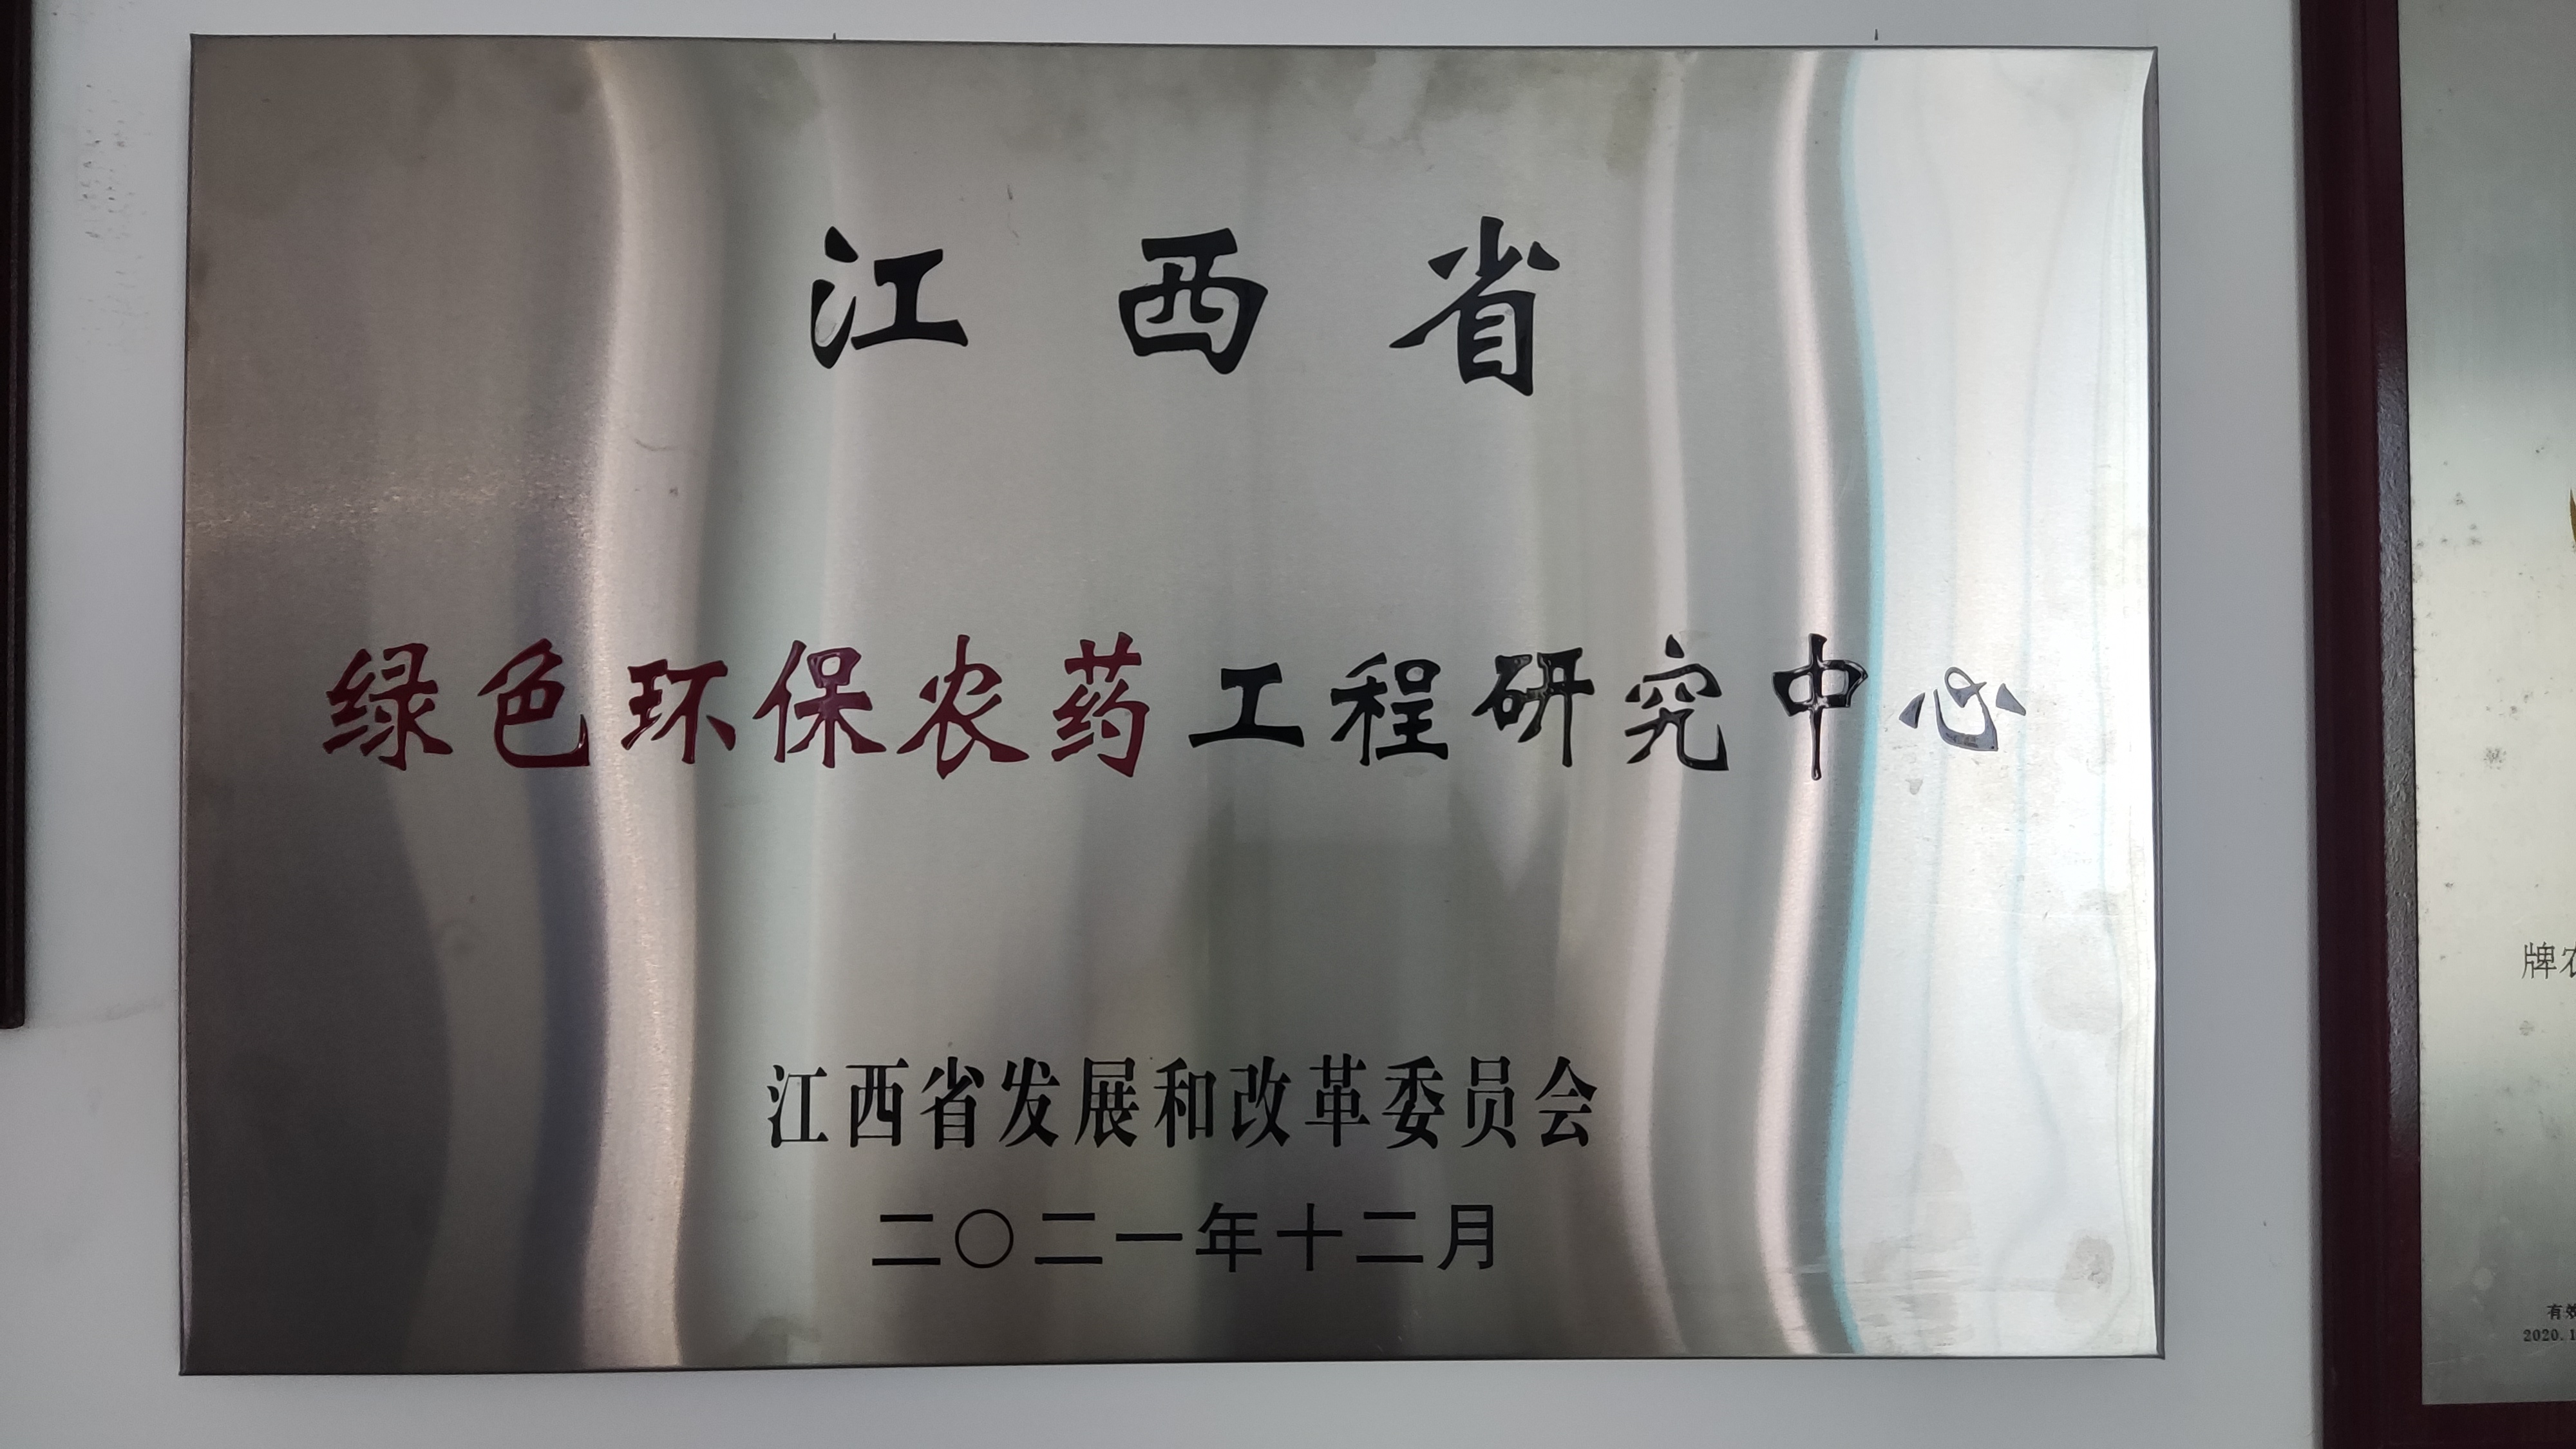 江西省
绿色环保农药工程研究中心
江西省发展和改革委员会
二〇二一年十二月
牌
有效
2020.1